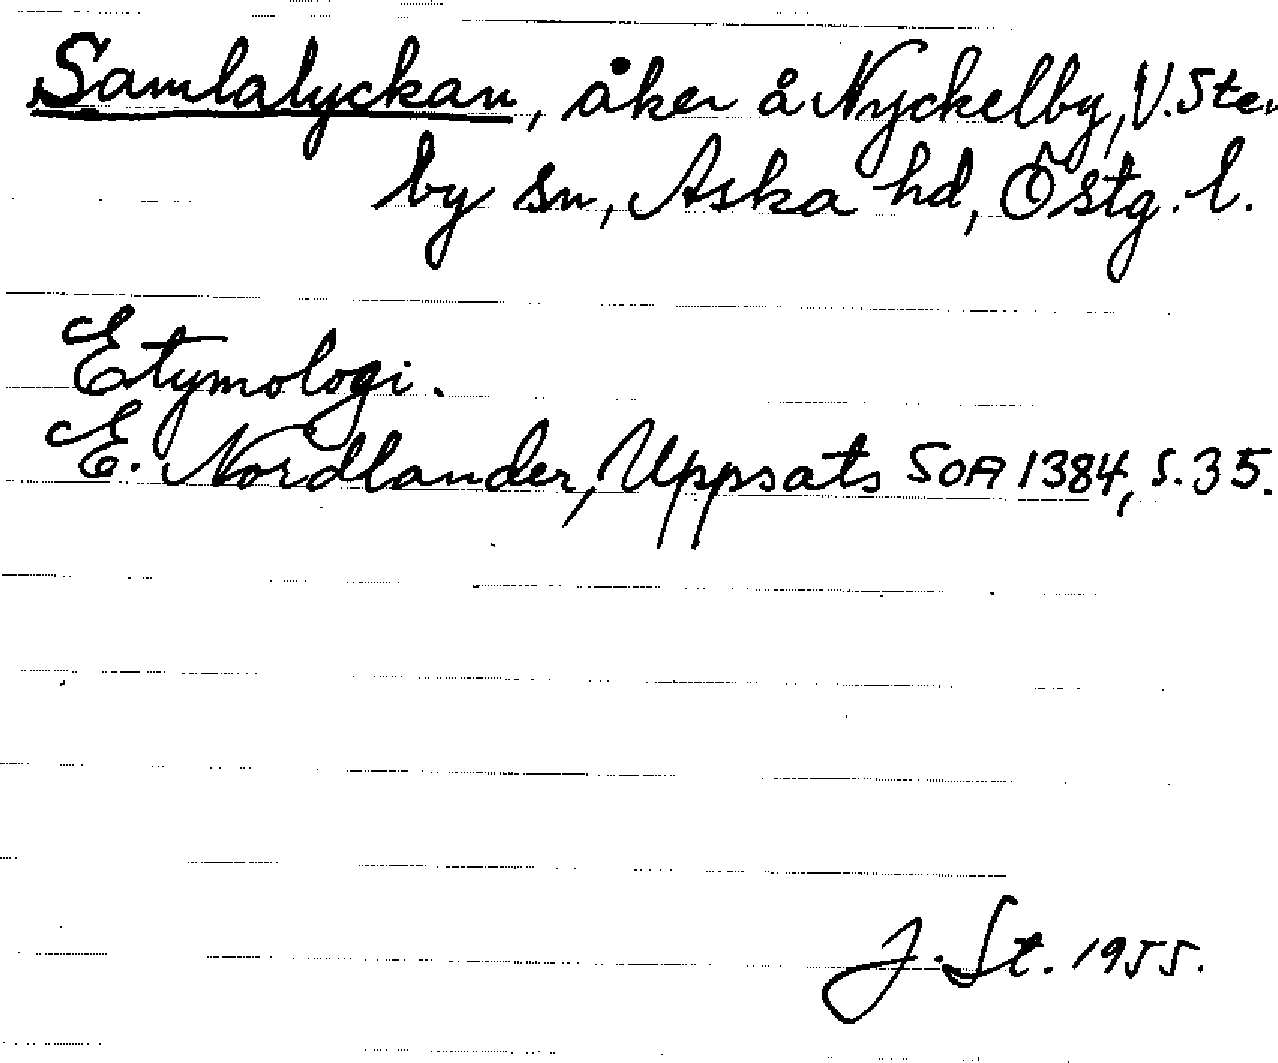 Samlalyckan, åker å Nyckelby, V. Sten
by sn, Aska hd, Östg. l.
Etymologi.
E. Nordlander, Uppsats SOA 1384, s. 35.
J. St. 1955.